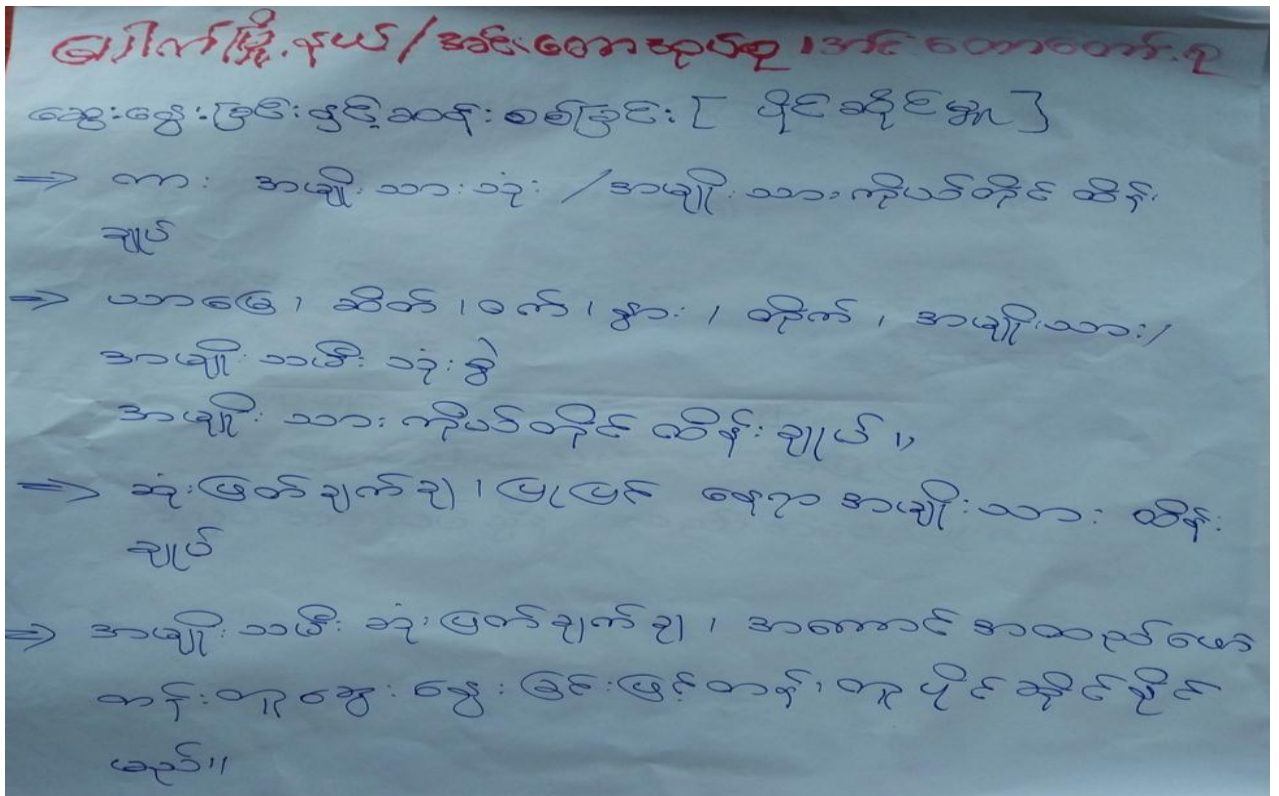 မြောက်မြို့နယ်/အင်းတောအုပ်စု၊ အင်းတောတော်စု
ဆွေးနွေးခြင်းနှင့်ဆန်းစစ်ခြင်း [ ပိုင်ဆိုင်မှု ]
⇒ ကား အမျိုးသားသုံး / အမျိုးသားကိုယ်တိုင် ထိန်း
ချုပ်
⇒ ယာမြေ၊ ဆိတ်၊ ဝက်၊ နွား၊ တိုက်၊ အမျိုးသား/
အမျိုးသမီး သုံးစွဲ
အမျိုးသား ကိုယ်တိုင် ထိန်းချုပ်။
⇒ ဆုံးဖြတ်ချက်ချ၊ ပြုပြင် နေရာ အမျိုးသား ထိန်း
ချုပ်
⇒ အမျိုးသမီး ဆုံးဖြတ်ချက်ချ၊ အကောင်အထည်ဖော်
တန်းတူဆွေးနွေးခြင်းဖြင့်တန်းတူပိုင်ဆိုင်နိုင်
မည်။